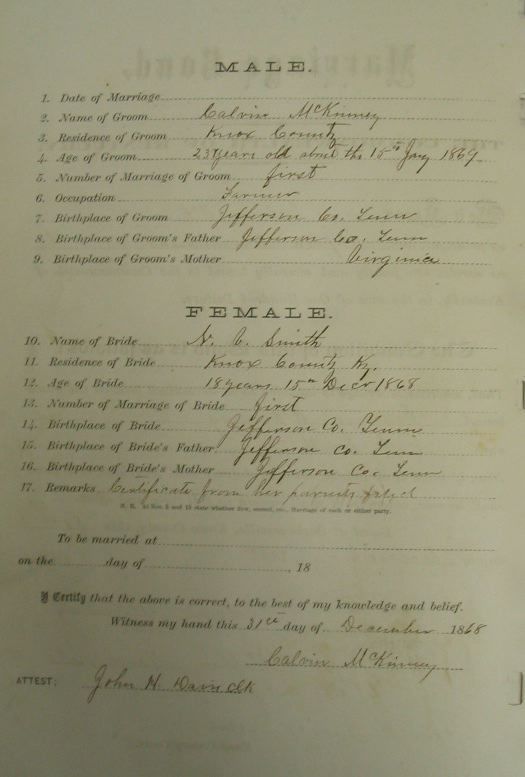 MALE.
1. Date of Marriage
2. Name of Groom Calvin McKinney
3. Residence of Groom Knox County
4. Age of Groom 23 years old about the 15th Jany 1869
5. Number of Marriage of Groom first
6. Occupation Farmer
7. Birthplace of Groom Jefferson Co. Tenn
8. Birthplace of Groom's Father Jefferson Co. Tenn
9. Birthplace of Groom's Mother Virginia
FEMALE.
10. Name of Bride N. C. Smith
11. Residence of Bride Knox County Ky.
12. Age of Bride 18 years 15th Decr 1868
13. Number of Marriage of Bride first
14. Birthplace of Bride Jefferson Co. Tenn
15. Birthplace of Bride's Father Jefferson Co. Tenn
16. Birthplace of Bride's Mother Jefferson Co. Tenn
17. Remarks Certificate from her parents filed
N. B. At Nos. 5 and 13 state whether first, second, etc., Marriage of each or either party.
To be married at
on the day of , 18
I Certify that the above is correct, to the best of my knowledge and belief.
Witness my hand this 31st day of December 1868
Calvin McKinney
ATTEST: John H. Davis Clk